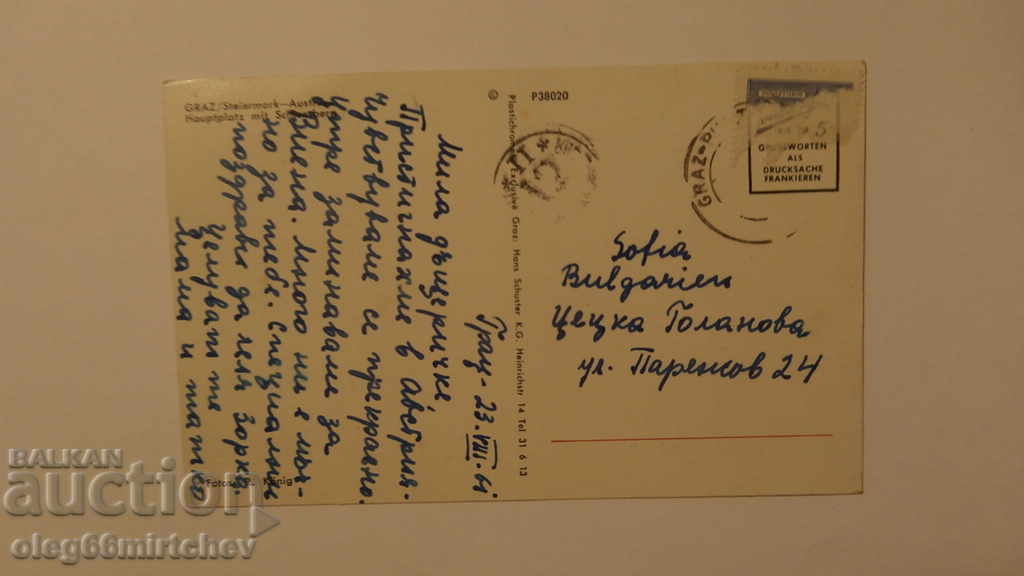 GRAZ/Steiermark—Aust
Hauptplatz mit
Грац - 23.VIII.61
Мила дъщеричке,
Пристигнахме в Австрия.
Чувствуваме се прекрасно.
Утре заминаваме за
Виена. Много ни е мъч-
но за тебе. Специални
поздрави да леля Зорка
Целуват те
Мама и татко
Fotos: P. König
© P38020
Exclusive Graz: Hans Schuster K.G. Heinrichstr. 14 Tel 31 6 13
GRAZ
5
GRUSSWORTEN
ALS
DRUCKSACHE
FRANKIEREN
Sofia
Bulgarien
Цецка Голанова
ул. Паренсов 24
BALKAN
auction
oleg66mirtchev